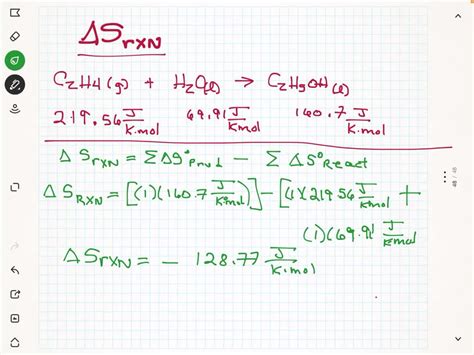 ΔS rxn
C₂H₄(g) + H₂O(l) → C₂H₅OH(l)
219.56 J/K·mol 69.91 J/K·mol 160.7 J/K·mol
ΔS rxn = ΣΔS° Prod − ΣΔS° React
ΔS RXN = [(1)(160.7 J/K·mol)] − [(1)(219.56 J/K·mol +
(1)(69.91 J/K·mol
ΔS rxn = − 128.77 J/K·mol